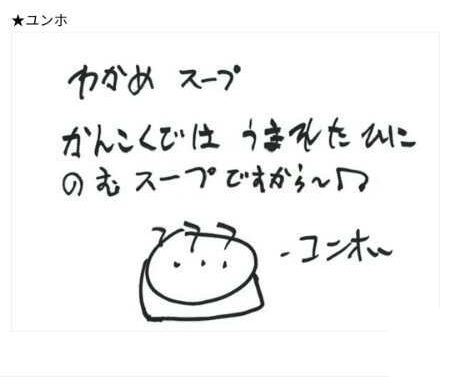 ★ユンホ
わかめ スープ
かんこくでは うまれた ひに
のむ スープですから〜♫
フフフ
-ユンホ